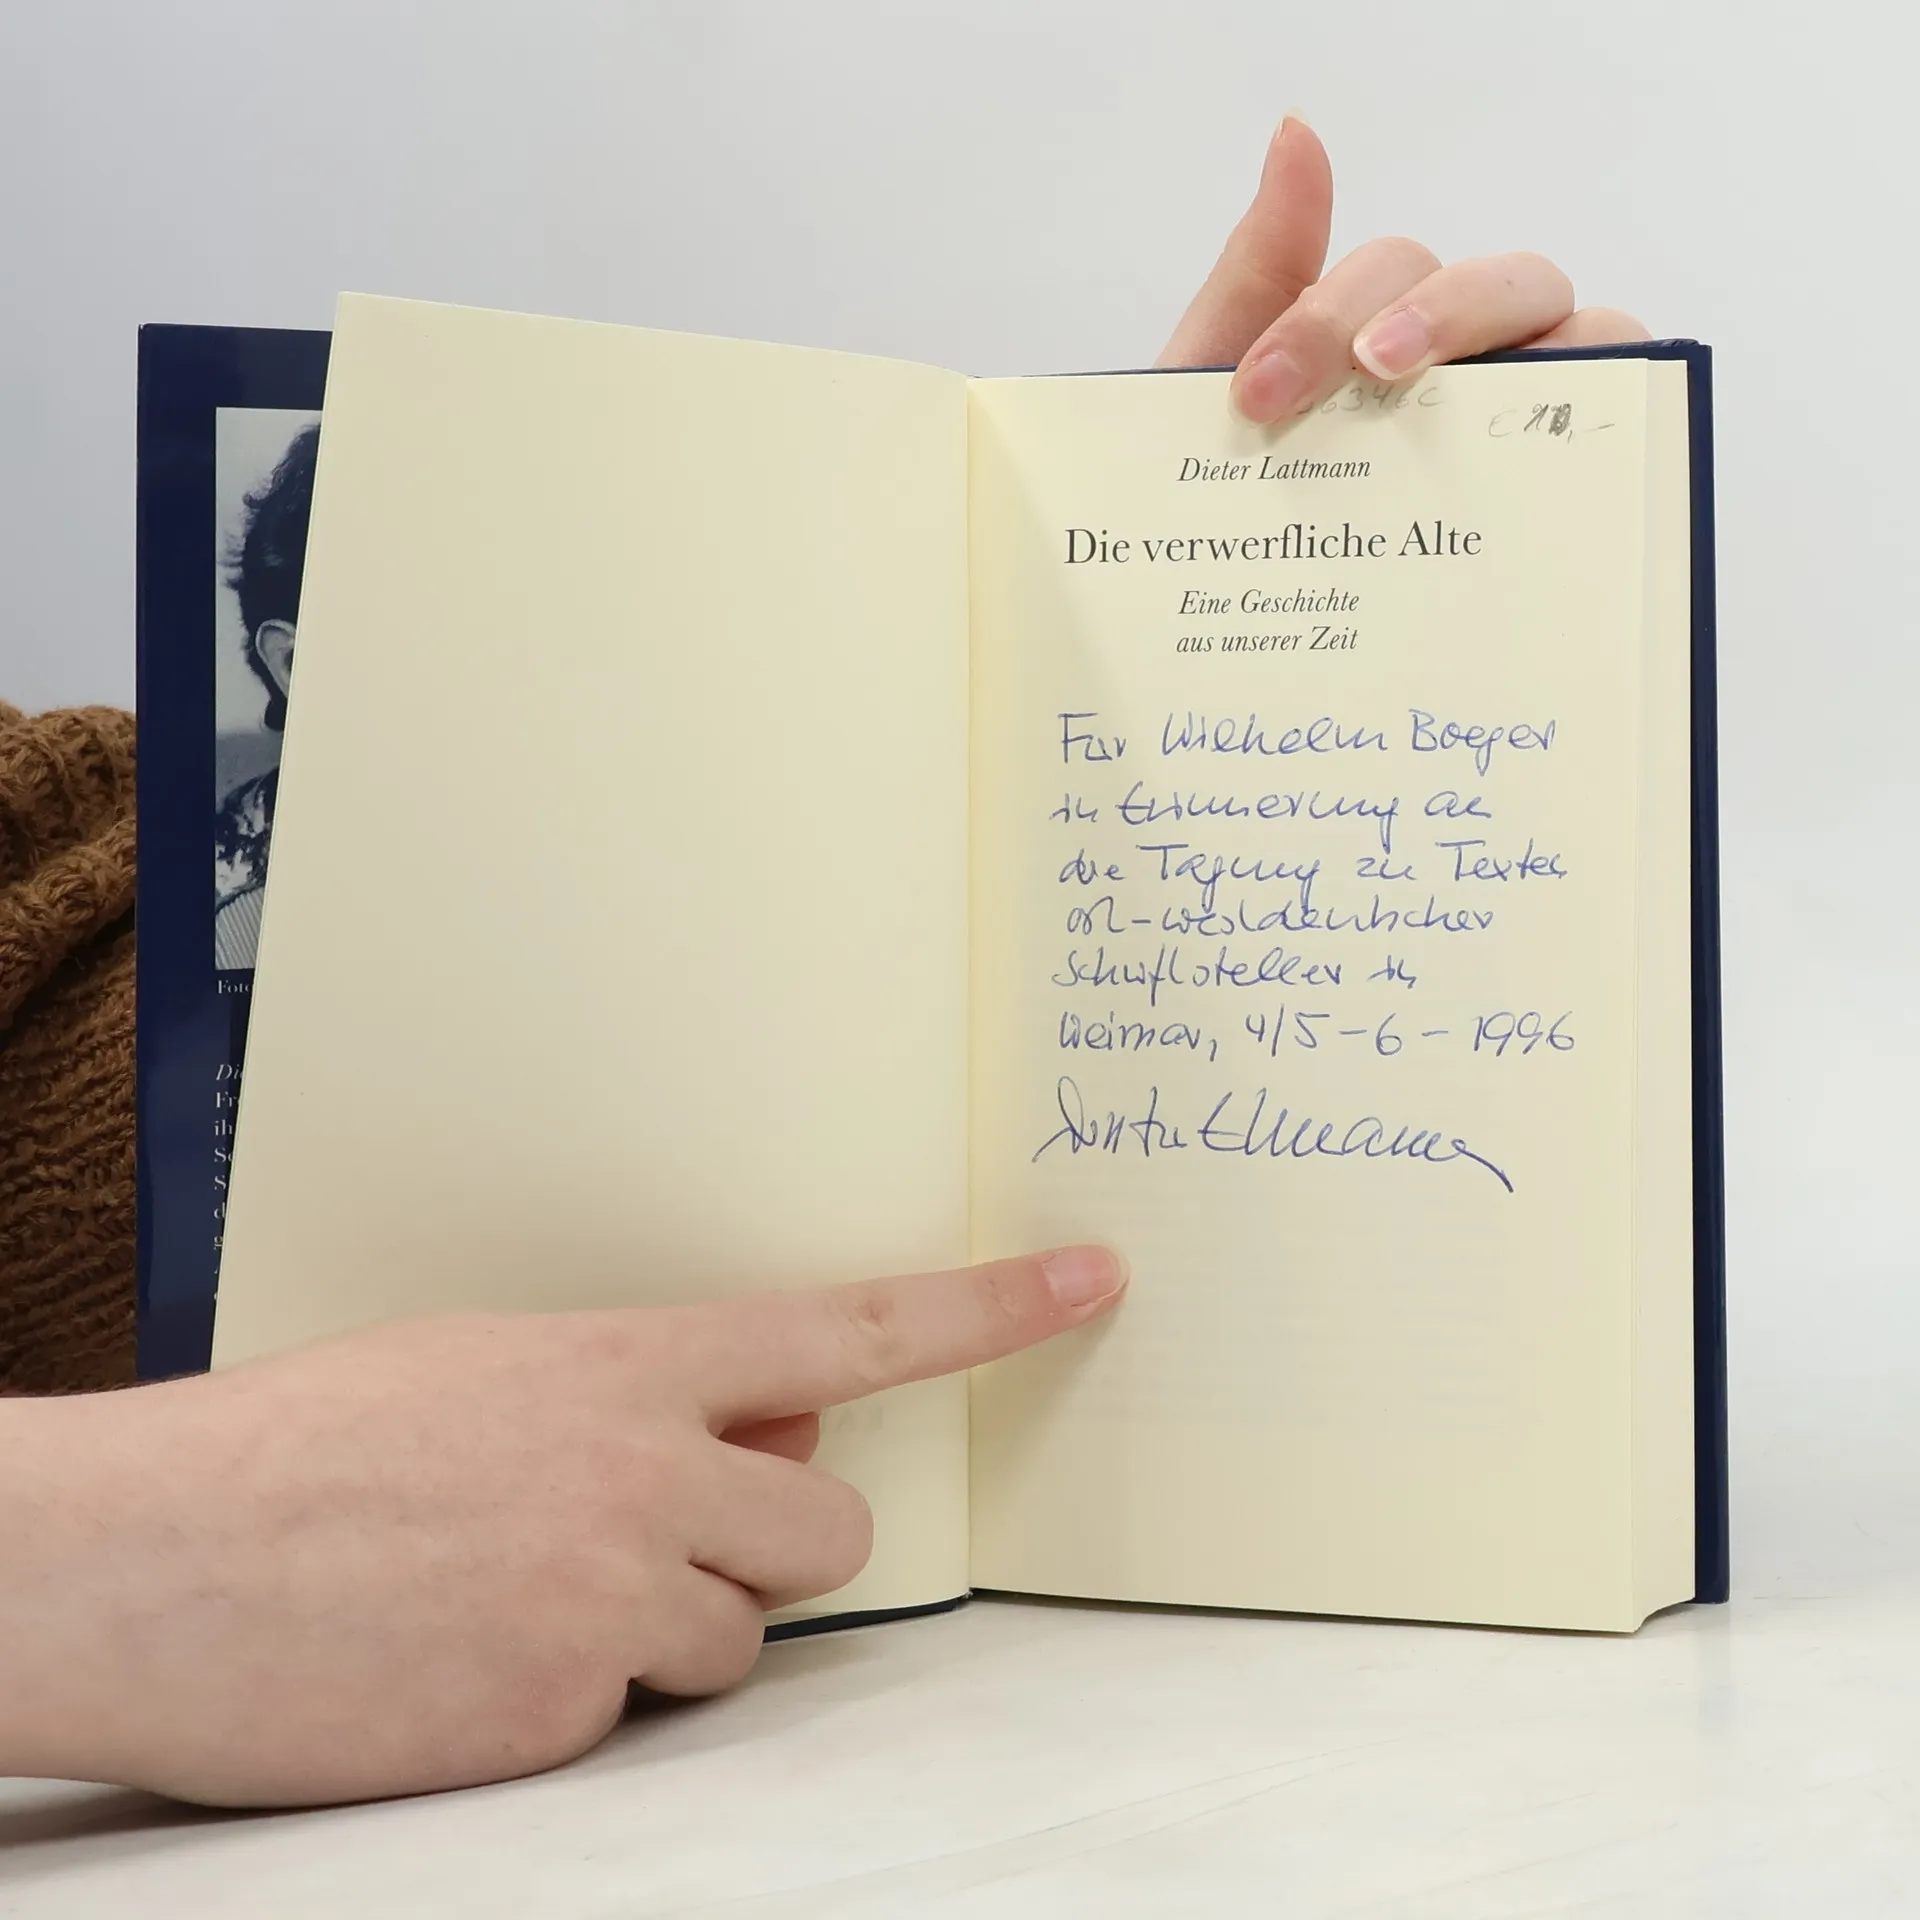 Foto
Di
Fr
ih
Se
S
d
g
6346C
€
Dieter Lattmann
Die verwerfliche Alte
Eine Geschichte
aus unserer Zeit
Für Wilhelm Boeger
in Erinnerung an
die Tagung zu Texten
ost-westdeutscher
Schriftsteller in
Weimar, 4/5-6-1996
Dieter Lattmann